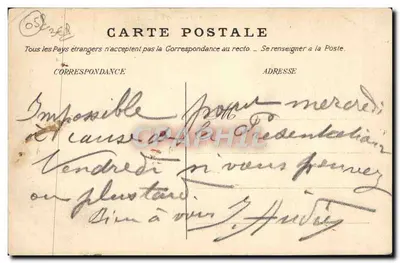 CARTE POSTALE
Tous les Pays étrangers n'acceptent pas la Correspondance au recto _ Se renseigner à la Poste.
CORRESPONDANCE
ADRESSE
Impossible pour mercredi
à cause de la
Vendredi si vous pouvez
ou plus tard.
Bien à vous